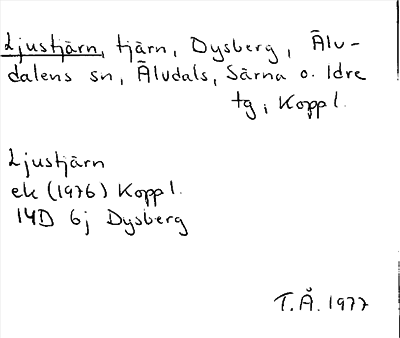 Ljustjärn, tjärn, Dysberg, Älv-
dalens sn, Älvdals, Särna o. Idre
tg, Koppl.
Ljustjärn
ek (1976) Koppl.
14D 6j Dysberg
T.Å. 1977